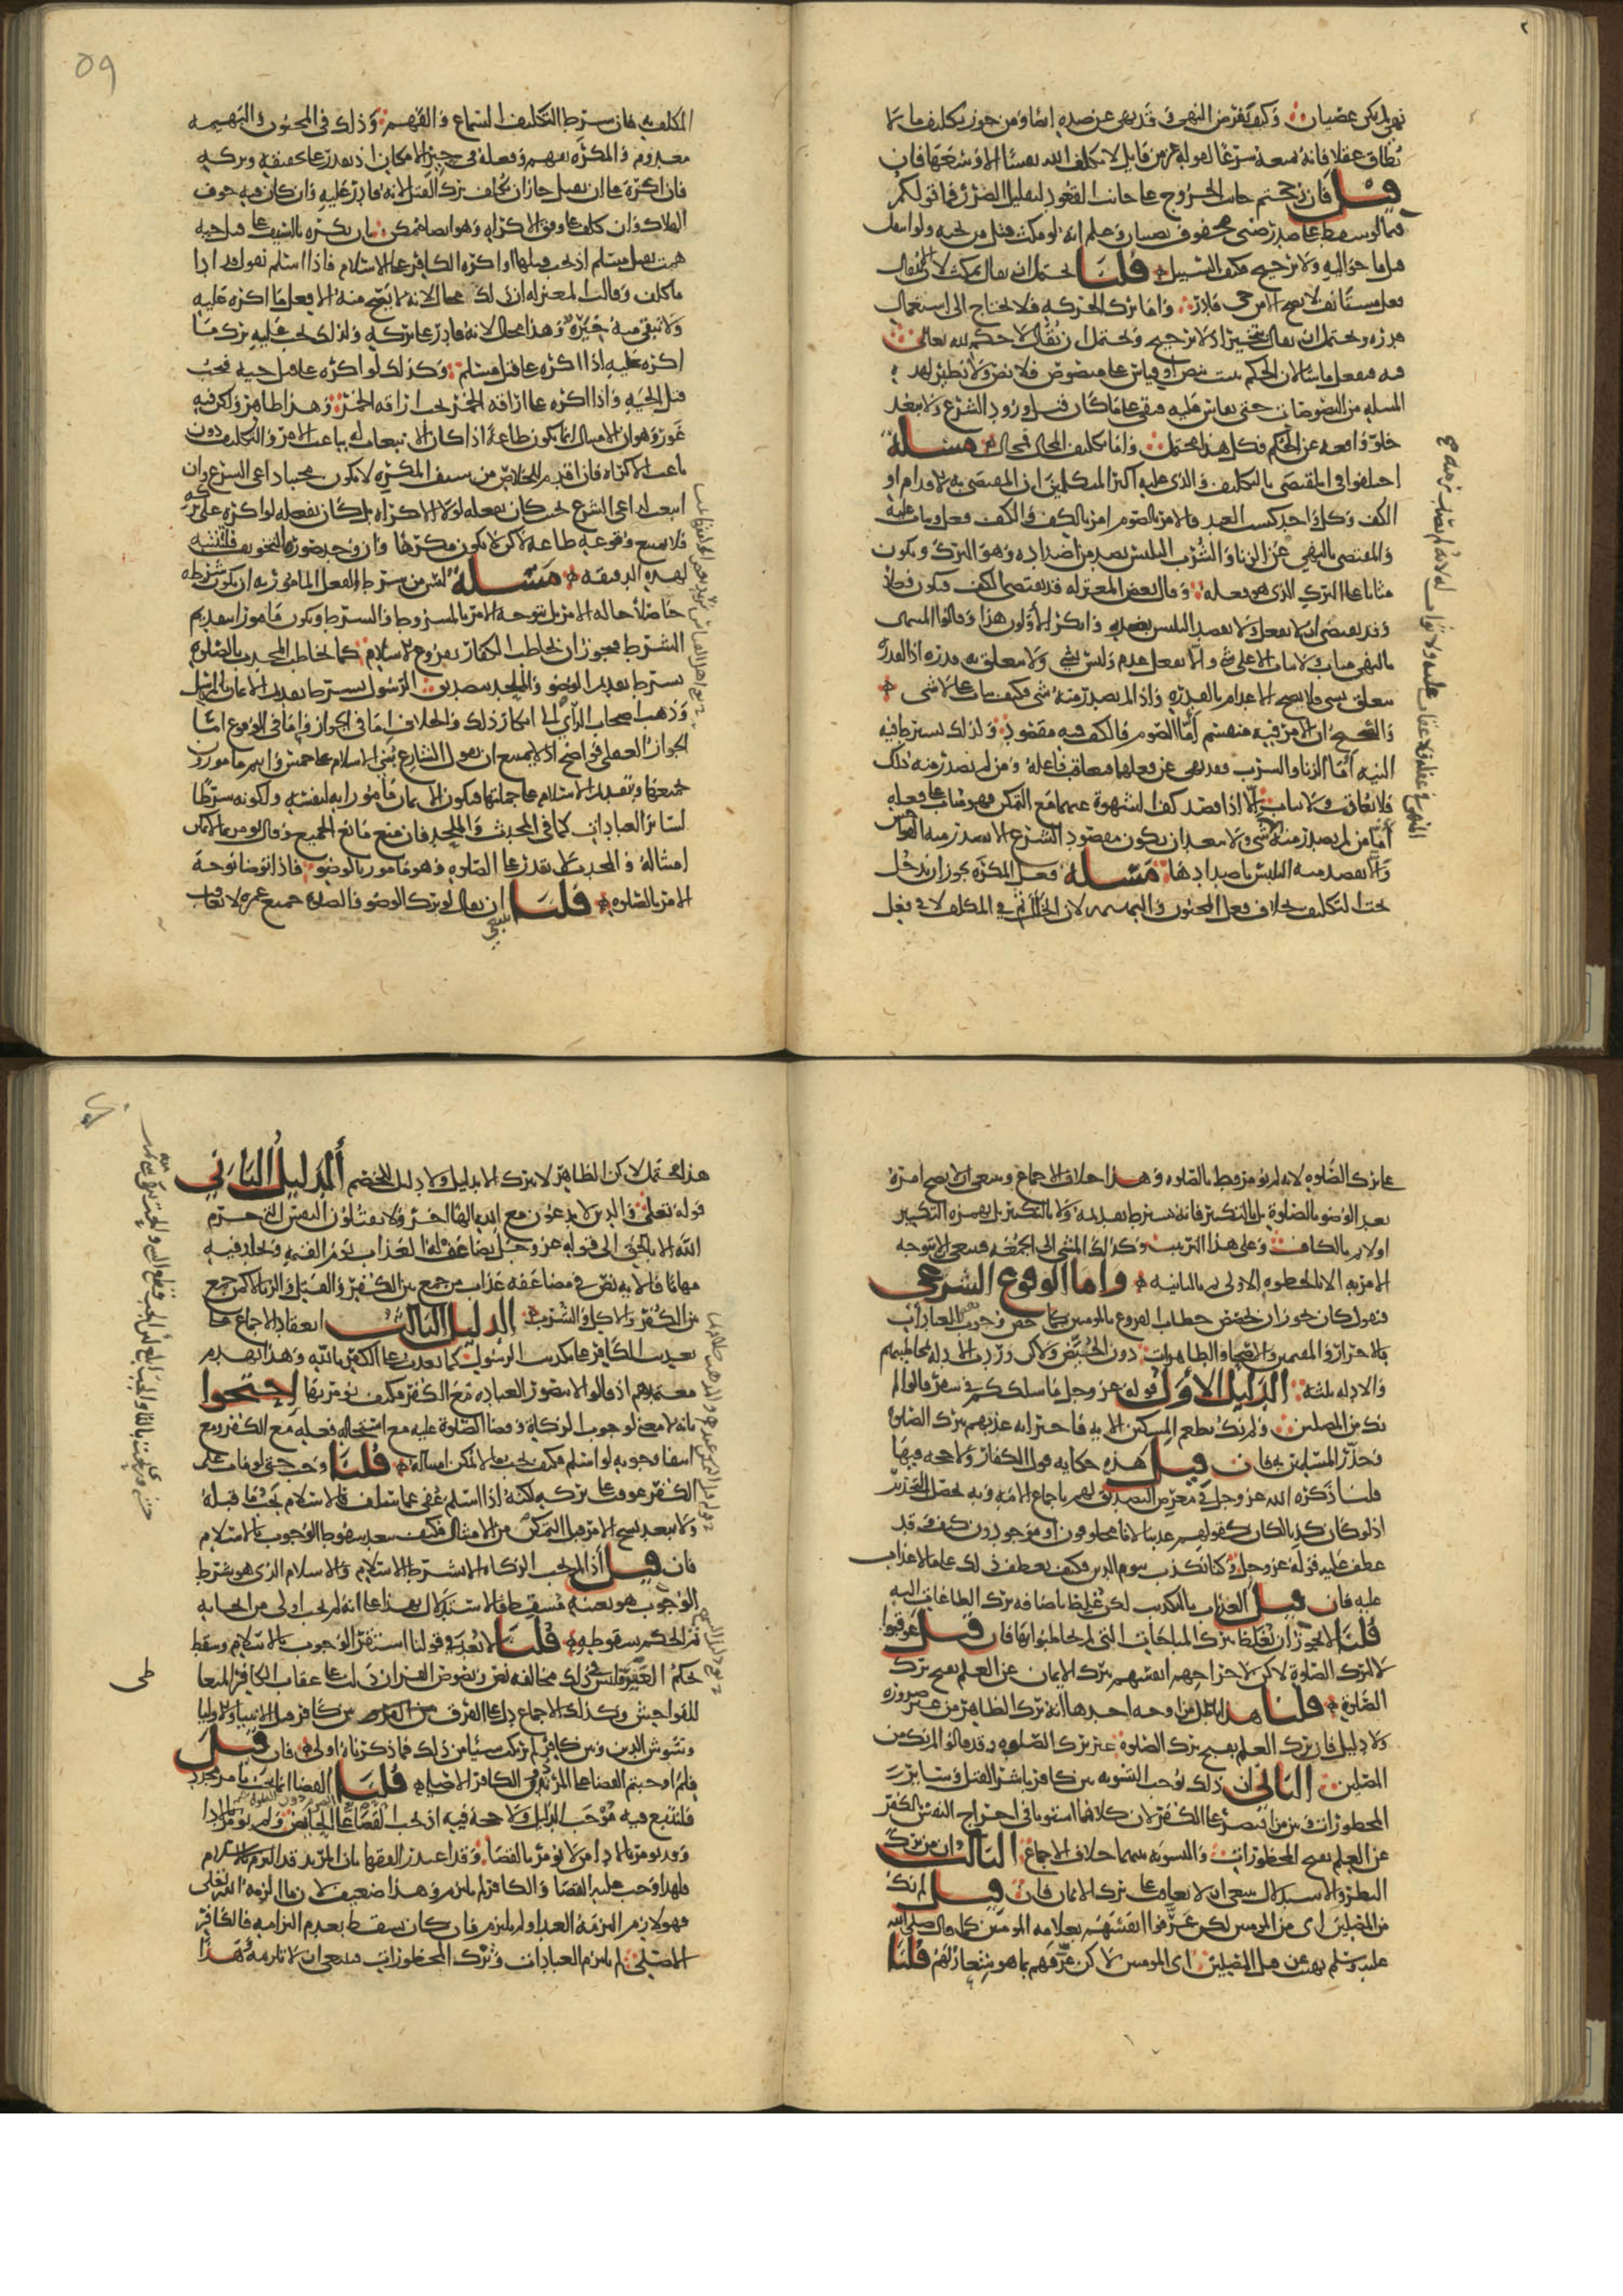 نهي لم يكن عصيان وكيف يفرض النهي وقد نهى عن ضده ايضا ومن جوز تكليف ما لا
يطاق عقلا فانه يمنعه شرعا لقوله عز من قايل لا يكلف الله نفسا الا وسعها فان
قيل فان رجحتم جانب الخروج على جانب القعود لتقليل الضرر فما قولكم
فيمن سقط على صدر صبي محفوف بصبيان وعلم انه لو مكث قتل من تحته ولو انتقل
قتل من حواليه ولا ترجيح فكيف السبيل قلنا يحتمل ان يقال يمكث لان الانتقال
فعل مستانف لا يصح الا من حي قادر واما ترك الحركة فلا يحتاج الى استعمال
قدرة ويحتمل ان يقال يتخير اذ لا ترجيح ويحتمل ان يقال لا حكم لله تعالى
فيه فيفعل ما يشا لان الحكم يثبت بنص او قياس على منصوص فلا نص ولا نظير لهذه
المسلة من المنصوصات حتى يقاس عليه فبقي على ما كان قبل ورود الشرع ولا يبعد
خلو واقعة عن الحكم فكل هذا محتمل واما تكليف المحال فمحال مسلة
اختلفوا في المقتضى بالتكليف والذي عليه اكثر المتكلمين ان المقتضى به الاقدام او
الكف وكل واحد كسب العبد فالامر بالصوم امر بالكف والكف فعل ويثاب عليه
والمقتضى بالنهي عن الزنا والشرب التلبس بضد من اضداده وهو الترك ويكون
مثابا على الترك الذي هو فعله وقال بعض المعتزلة قد يقتضي الكف فيكون فعلا
وقد يقتضي ان لا يفعل ولا يقصد التلبس بضده وانكر الاولون هذا وقالوا المنتهي
بالنهي مثاب ولا يثاب الا على شي والا يفعل عدم وليس بشي ولا يتعلق به قدرة اذ القدرة
تتعلق بشي فلا يصح الاعدام بالقدرة واذا لم يصدر منه شي فكيف يثاب على لا شي
والصحيح ان الامر فيه منقسم اما الصوم فالكف فيه مقصود ولذلك تشترط فيه
النية اما الزنا والشرب فقد نهى عن فعلهما فيعاقب فاعله ومن لم يصدر منه ذلك
فلا يعاقب ولا يثاب الا اذا قصد كف الشهوة عنهما مع التمكن فهو مثاب على فعله
اما من لم يصدر منه المنهي ولا يبعد ان يكون مقصود الشرع الا يصدر منه الفواحش
والا يقصد منه التلبس باضدادها مسلة فعل المكره يجوز ان يدخل
تحت التكليف بخلاف فعل المجنون والبهيمة لان الخلل ثم في المكلف لا في فعل
المكلف به فان شرط التكليف السماع والفهم وذلك في المجنون والبهيمة
معدوم والمكره يفهم وفعله في حيز الامكان اذ يقدر على تحقيقه وتركه
فان اكره على ان يقتل جاز ان يكلف ترك القتل لانه قادر عليه وان كان فيه خوف
الهلاك وان كلف على وفق الاكراه وهو ايضا ممكن بان يكره بالسيف على قتل حية
همت بقتل مسلم اذ يجب قتلها او اكره الكافر على الاسلام فاذا اسلم نقول قد ادا
ما كلف وقالت المعتزلة ان ذلك محال لانه لا يصح منه الا فعل ما اكره عليه
ولا تبقى منه خيرة وهذا محال لانه قادر على تركه ولذلك يجب عليه ترك ما
اكره عليه اذا اكره على قتل مسلم وكذلك لو اكره على قتل حية فيجب
قتل الحية واذا اكره على اراقة الخمر يجب اراقة الخمر وهذا ظاهر ولكن فيه
غور وهو ان الامتثال انما يكون طاعة اذا كان الانبعاث له بباعث الامر والتكليف دون
باعث الاكراه فان اقدم للخلاص من سيف المكره لا يكون مجيبا داعي الشرع وان
انبعث لداعي الشرع بحيث كان يفعله لولا الاكراه بل كان يفعله لو اكره على تركه
فلا يمتنع وقوعه طاعة لاكن لا يكون مكرها وان وجد صورة التخويف فلتنتبه
لهذه الدقيقة مسلة ليس من شرط الفعل المامور به ان يكون شرطه
حاصلا حالة الامر بل يتوجه الامر بالمشروط والشرط ويكون مامورا بتقديم
الشرط فيجوز ان يخاطب الكفار بفروع الاسلام كما يخاطب المحدث بالصلوة
بشرط تقديم الوضو والملحد بتصديق الرسول بشرط تقديم الايمان بالمرسل
وذهب اصحاب الراي الى انكار ذلك والخلاف اما في الجواز واما في الوقوع اما
الجواز العقلي فواضح اذ لا يمتنع ان يقول الشارع بني الاسلام على خمس وانتم مامورون
بجميعها وبتقديم الاسلام على جملتها فيكون الايمان مامورا به لنفسه ولكونه شرطا
لسائر العبادات كما في المحدث والملحد فان منع مانع الجميع وقال كيف يومر بما لا يمكن
امتثاله والمحدث لا يقدر على الصلوة فهو مامور بالوضو فاذا توضا توجه
الامر بالصلوة قلنا ينبغي ان يقال لو ترك الوضو والصلوة جميع عمره لا يعاقب
على ترك الصلوة لانه لم يومر قط بالصلوة وهذا خلاف الاجماع وينبغي الا يصح امره
بعد الوضو بالصلوة بل بالتكبير فانه يشترط تقديمه ولا بالتكبير بل بهمزة التكبير
اولا ثم بالكاف وعلى هذا الترتيب وكذلك المشي الى الجمعة فينبغي الا يتوجه
الامر به الا بالخطوة الاولى ثم بالثانية واما الوقوع الشرعي
فنقول كان يجوز ان يخصص خطاب الفروع بالمومنين كما خص وجوب العبادات
بالاحرار والمقيمين والاصحا والطاهرات دون الحيض ولاكن وردت الادلة بمخاطبتهم
والادلة ثلثة الدليل الاول قوله عز وجل ما سلككم في سقر قالوا لم
نك من المصلين ولم نك نطعم المسكين الاية فاخبر انه عذبهم بترك الصلوة
وحذر المسلمين به فان قيل هذه حكاية قول الكفار ولا حجة فيها
قلنا ذكره الله عز وجل في معرض التصديق لهم باجماع الامة وبه يحصل التحذير
اذ لو كان كذبا لكان كقولهم عذبنا لانا مخلوقون او موجودون كيف وقد
عطف عليه قوله عز وجل وكنا نكذب بيوم الدين فكيف يعطف ذلك على ما لا عذاب
عليه فان قيل العذاب بالتكذيب لكن غلظ باضافة ترك الطاعات اليه
قلنا لا يجوز ان يغلظ بترك المباحات التي لم يخاطبوا بها فان قيل عوقبوا
لا لترك الصلوة لاكن لاخراجهم انفسهم بترك الايمان عن العلم بقبح ترك
الصلوة قلنا هذا باطل من اوجه احدها انه ترك الظاهر من غير ضرورة
ولا دليل فان ترك العلم بقبح ترك الصلوة غير ترك الصلوة وقد قالوا لم نك من
المصلين الثاني ان ذلك يوجب التسوية بين كافر باشر القتل وسائر
المحظورات وبين من اقتصر على الكفر لان كلاهما استويا في اخراج النفس بالكفر
عن العلم بقبح المحظورات والتسوية بينهما خلاف الاجماع الثالث ان من ترك
النظر والاستدلال ينبغي ان لا يعاقب على ترك الايمان فان قيل لم نك
من المصلين اي من المومنين لكن عرفوا انفسهم بعلامة المومنين كما قال صلى الله
عليه وسلم نهيت عن قتل المصلين اي المومنين لاكن عرفهم بما هو شعار لهم قلنا
هذا محتمل لاكن الظاهر لا يترك الا بدليل ولا دليل للخصم الدليل الثاني
قوله تعلى والذين لا يدعون مع الله الها اخر ولا يقتلون النفس التي حرم
الله الا بالحق الى قوله عز وجل يضاعف له العذاب يوم القيمة ويخلد فيه
مهانا فالاية نص في مضاعفة عذاب من جمع بين الكفر والقتل والزنا لا كمن جمع
بين الكفر والاكل والشرب الدليل الثالث انعقاد الاجماع على
تعذيب الكافر على تكذيب الرسول كما يعذب على الكفر بالله وهذا يهدم
معتمدهم اذ قالوا لا تتصور العبادة مع الكفر فكيف يومر بها احتجوا
بانه لا معنى لوجوب الزكاة وقضا الصلوة عليه مع استحالة فعله مع الكفر ومع
انتفا وجوبه لو اسلم فكيف يجب ما لا يمكن امتثاله قلنا وجب حتى لو مات على
الكفر عوقب على تركه لكنه اذا اسلم عفي عما سلف فالاسلام يجب ما قبله
ولا يبعد نسخ الامر قبل التمكن من الامتثال فكيف يبعد سقوط الوجوب بالاسلام
فان قيل اذا لم تجب الزكاة الا بشرط الاسلام والاسلام الذي هو شرط
الوجوب هو بعينه مسقط فالاستدلال بهذا على انه لم يجب اولى من ايجابه
ثم الحكم بسقوطه قلنا لا بعد في قولنا استقر الوجوب بالاسلام وسقط
بحكم العفو فليس في ذلك مخالفة نص ونصوص القران دلت على عقاب الكافر المتعاطي
للفواحش وكذلك الاجماع دل على الفرق بين كافر قتل الانبيا والاوليا
وشوش الدين وبين كافر لم يرتكب شيا من ذلك فما ذكرناه اولى فان قيل
فلم اوجبتم القضا على المرتد دون الكافر الاصلي قلنا القضا انما يجب بامر مجدد
فلنتبع فيه موجب الدليل ولا حجة فيه اذ يجب القضا على الحايض ولم تومر بالادا
وقد يومر بالادا من لا يومر بالقضا وقد اعتذر الفقها بان المرتد قد التزم بالاسلام
فلهذا وجب عليه القضا والكافر لم يلتزم وهذا ضعيف لان ما الزمه الله تعلى
فهو لازم التزمه العبد او لم يلتزم فان كان يسقط بعدم التزامه فالكافر
الاصلي لم يلتزم العبادات وترك المحظورات فينبغي ان لا تلزمه هذا